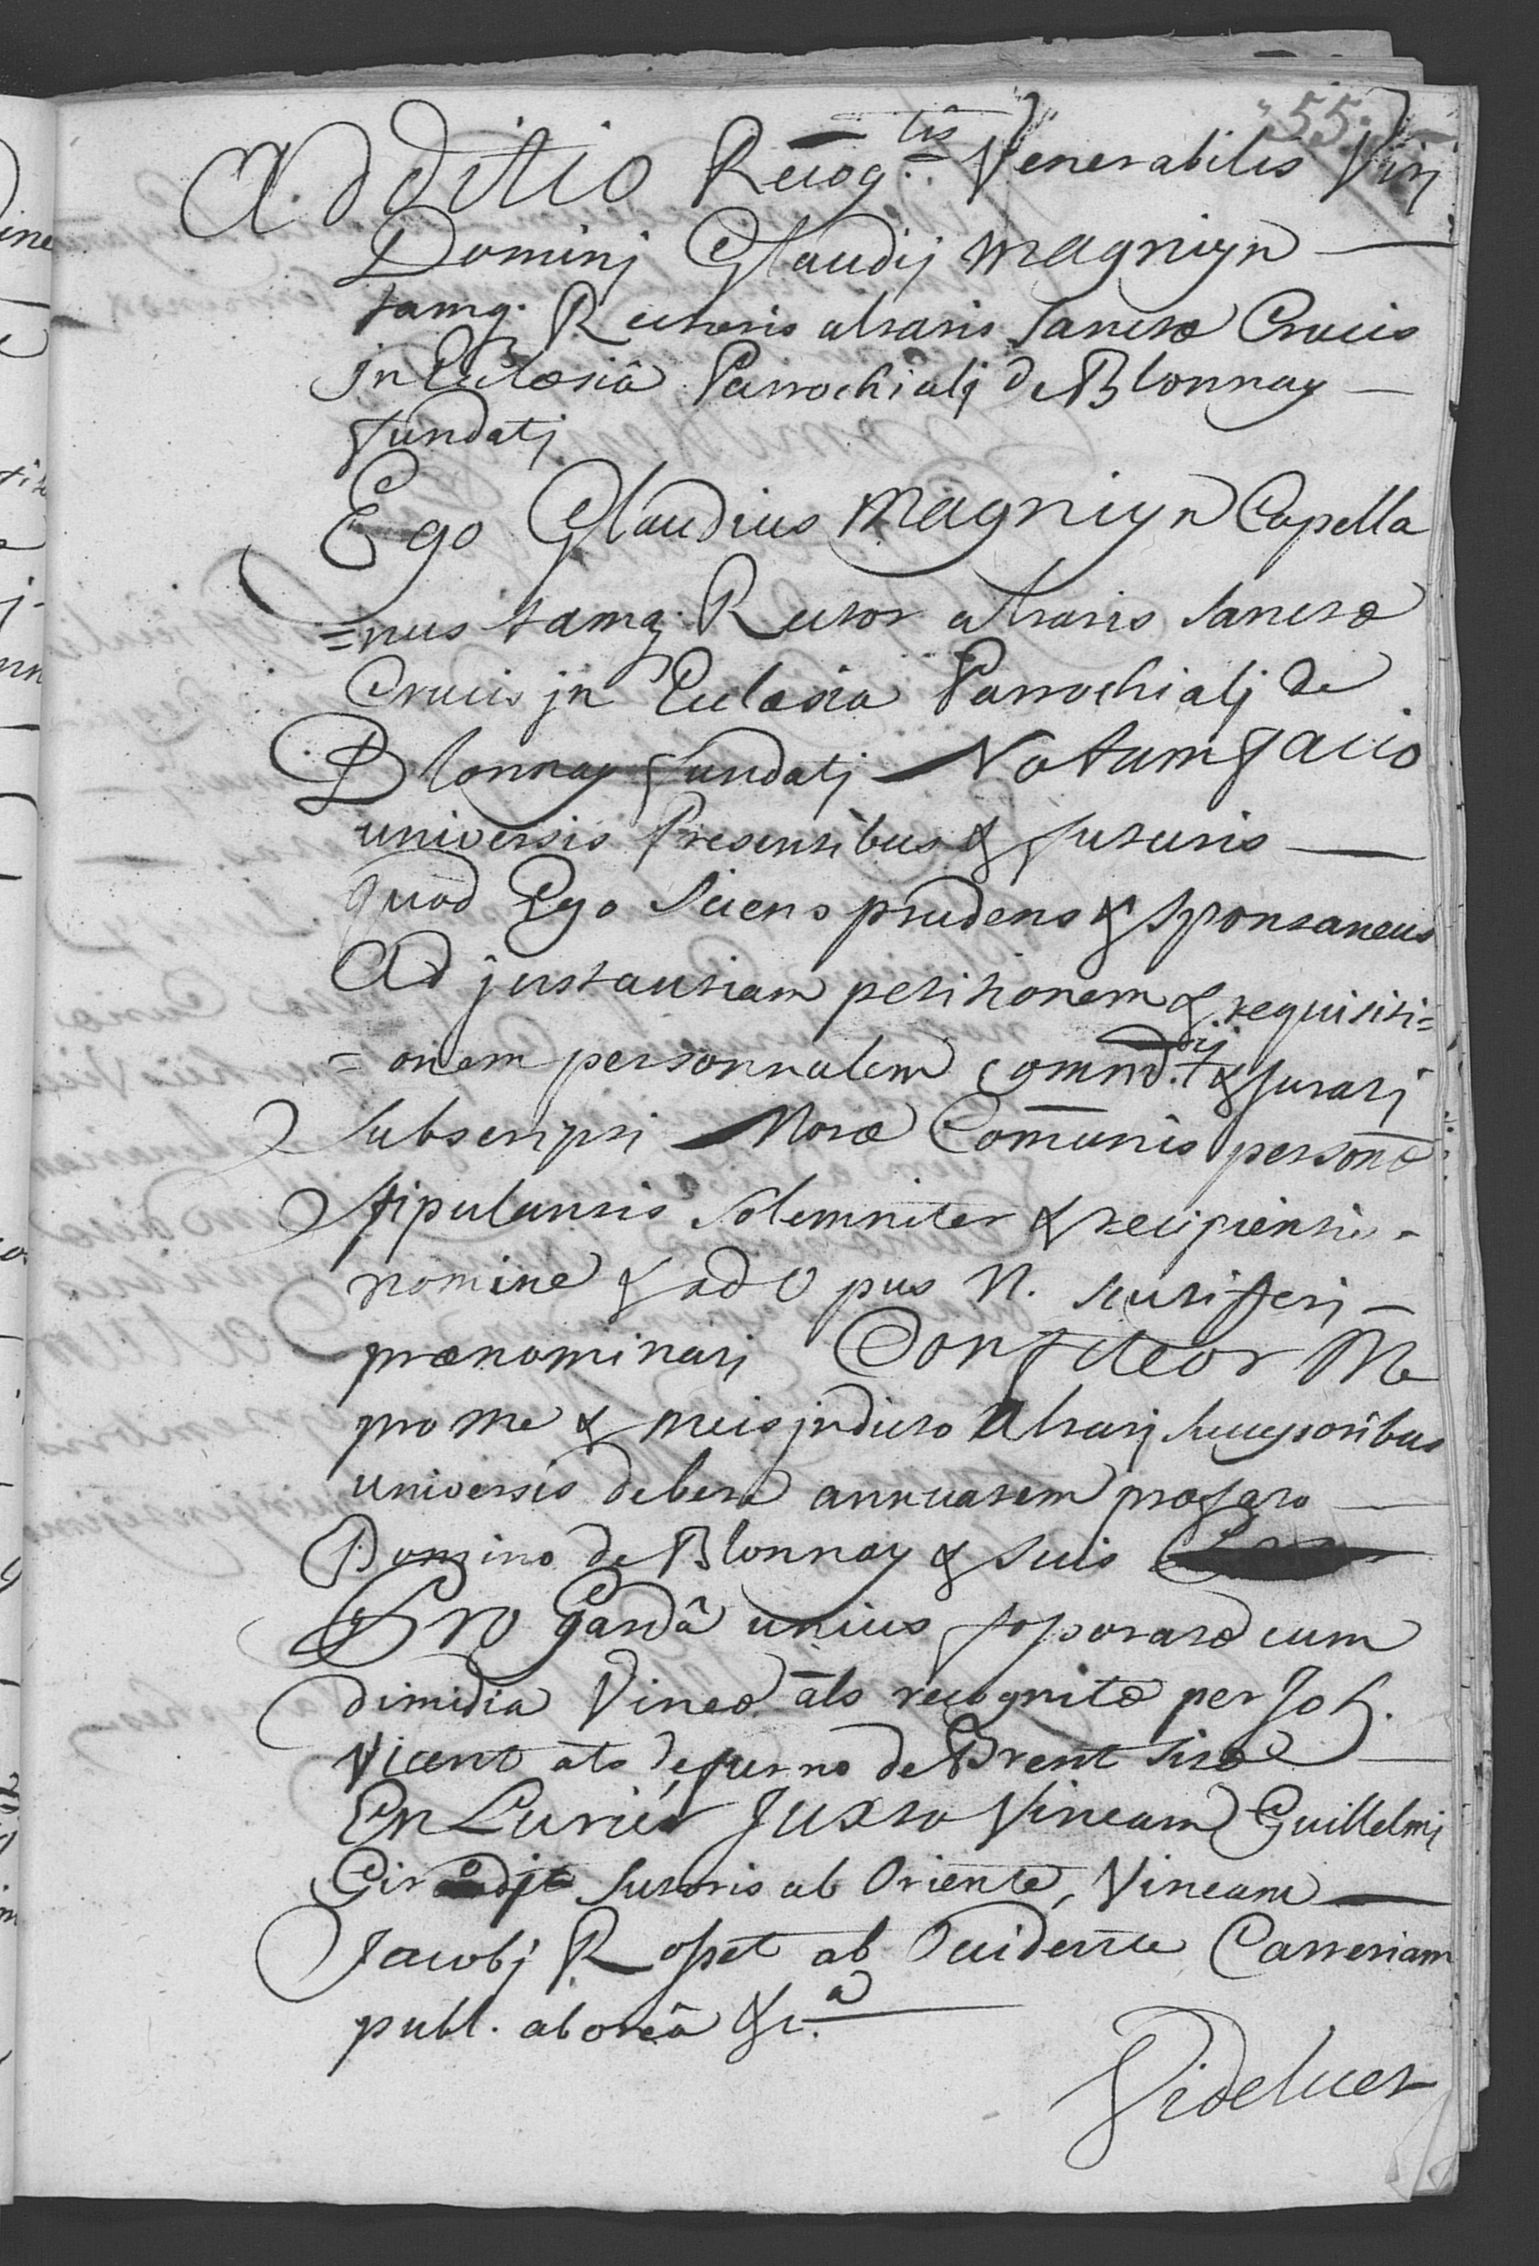 55.
Additio Recog.tis Venerabilis Virj
Dominj Glaudij Magniyn
tamq. Rectoris altaris Sanctæ Crucis
jn Eclæsiâ Parrochialj de Blonnay
fundatj
Ego Glaudius Magniyn Capella
=nus tamq. Rector altaris Sanctæ
Crucis jn Eclæsia Parrochialj de
Blonnay fundatj Notum facio
universis Presentibus & futuris
quod Ego Sciens prudens & spontaneus
Ad jnstantiam petitionem & requisiti=
=onem personnalem Commd.rij & Juratj
Subscripti More Comunis personæ
stipulantis Solemniter & recipientis
nomine & ad Opus N. Scutifferj
prænominatj Confiteor Me
pro Me & Meis jn dicto Altarj Successoribus
universis debere annuatim præfato
Domino de Blonnay & Suis
Pro Gardâ unius posatæ cum
dimidia Vineæ als recognitæ per Joh.
Vicent als de furno de Brent Sitæ
En Lurier Juxta Vineam Guillelmj
Sutoris ab Oriente, Vineam
Jacobj Rosset ab Occidente Carreriam
publ. a boreâ &c.a
Videlicet